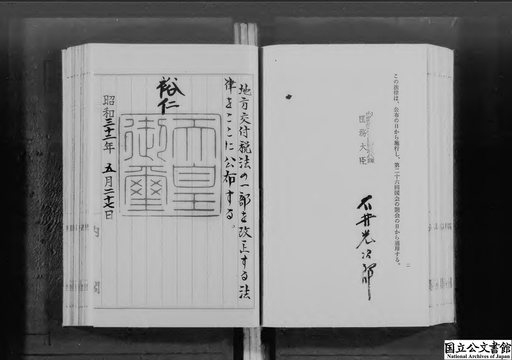 この法律は、公布の日から施行し、第二十六回国会の開会の日から適用する。
国務大臣
石井光次郎
地方交付税法の一部を改正する法
律をここに公布する。
裕仁
天皇
御璽
昭和三十二年 五月二十七日
国立公文書館
National Archives of Japan